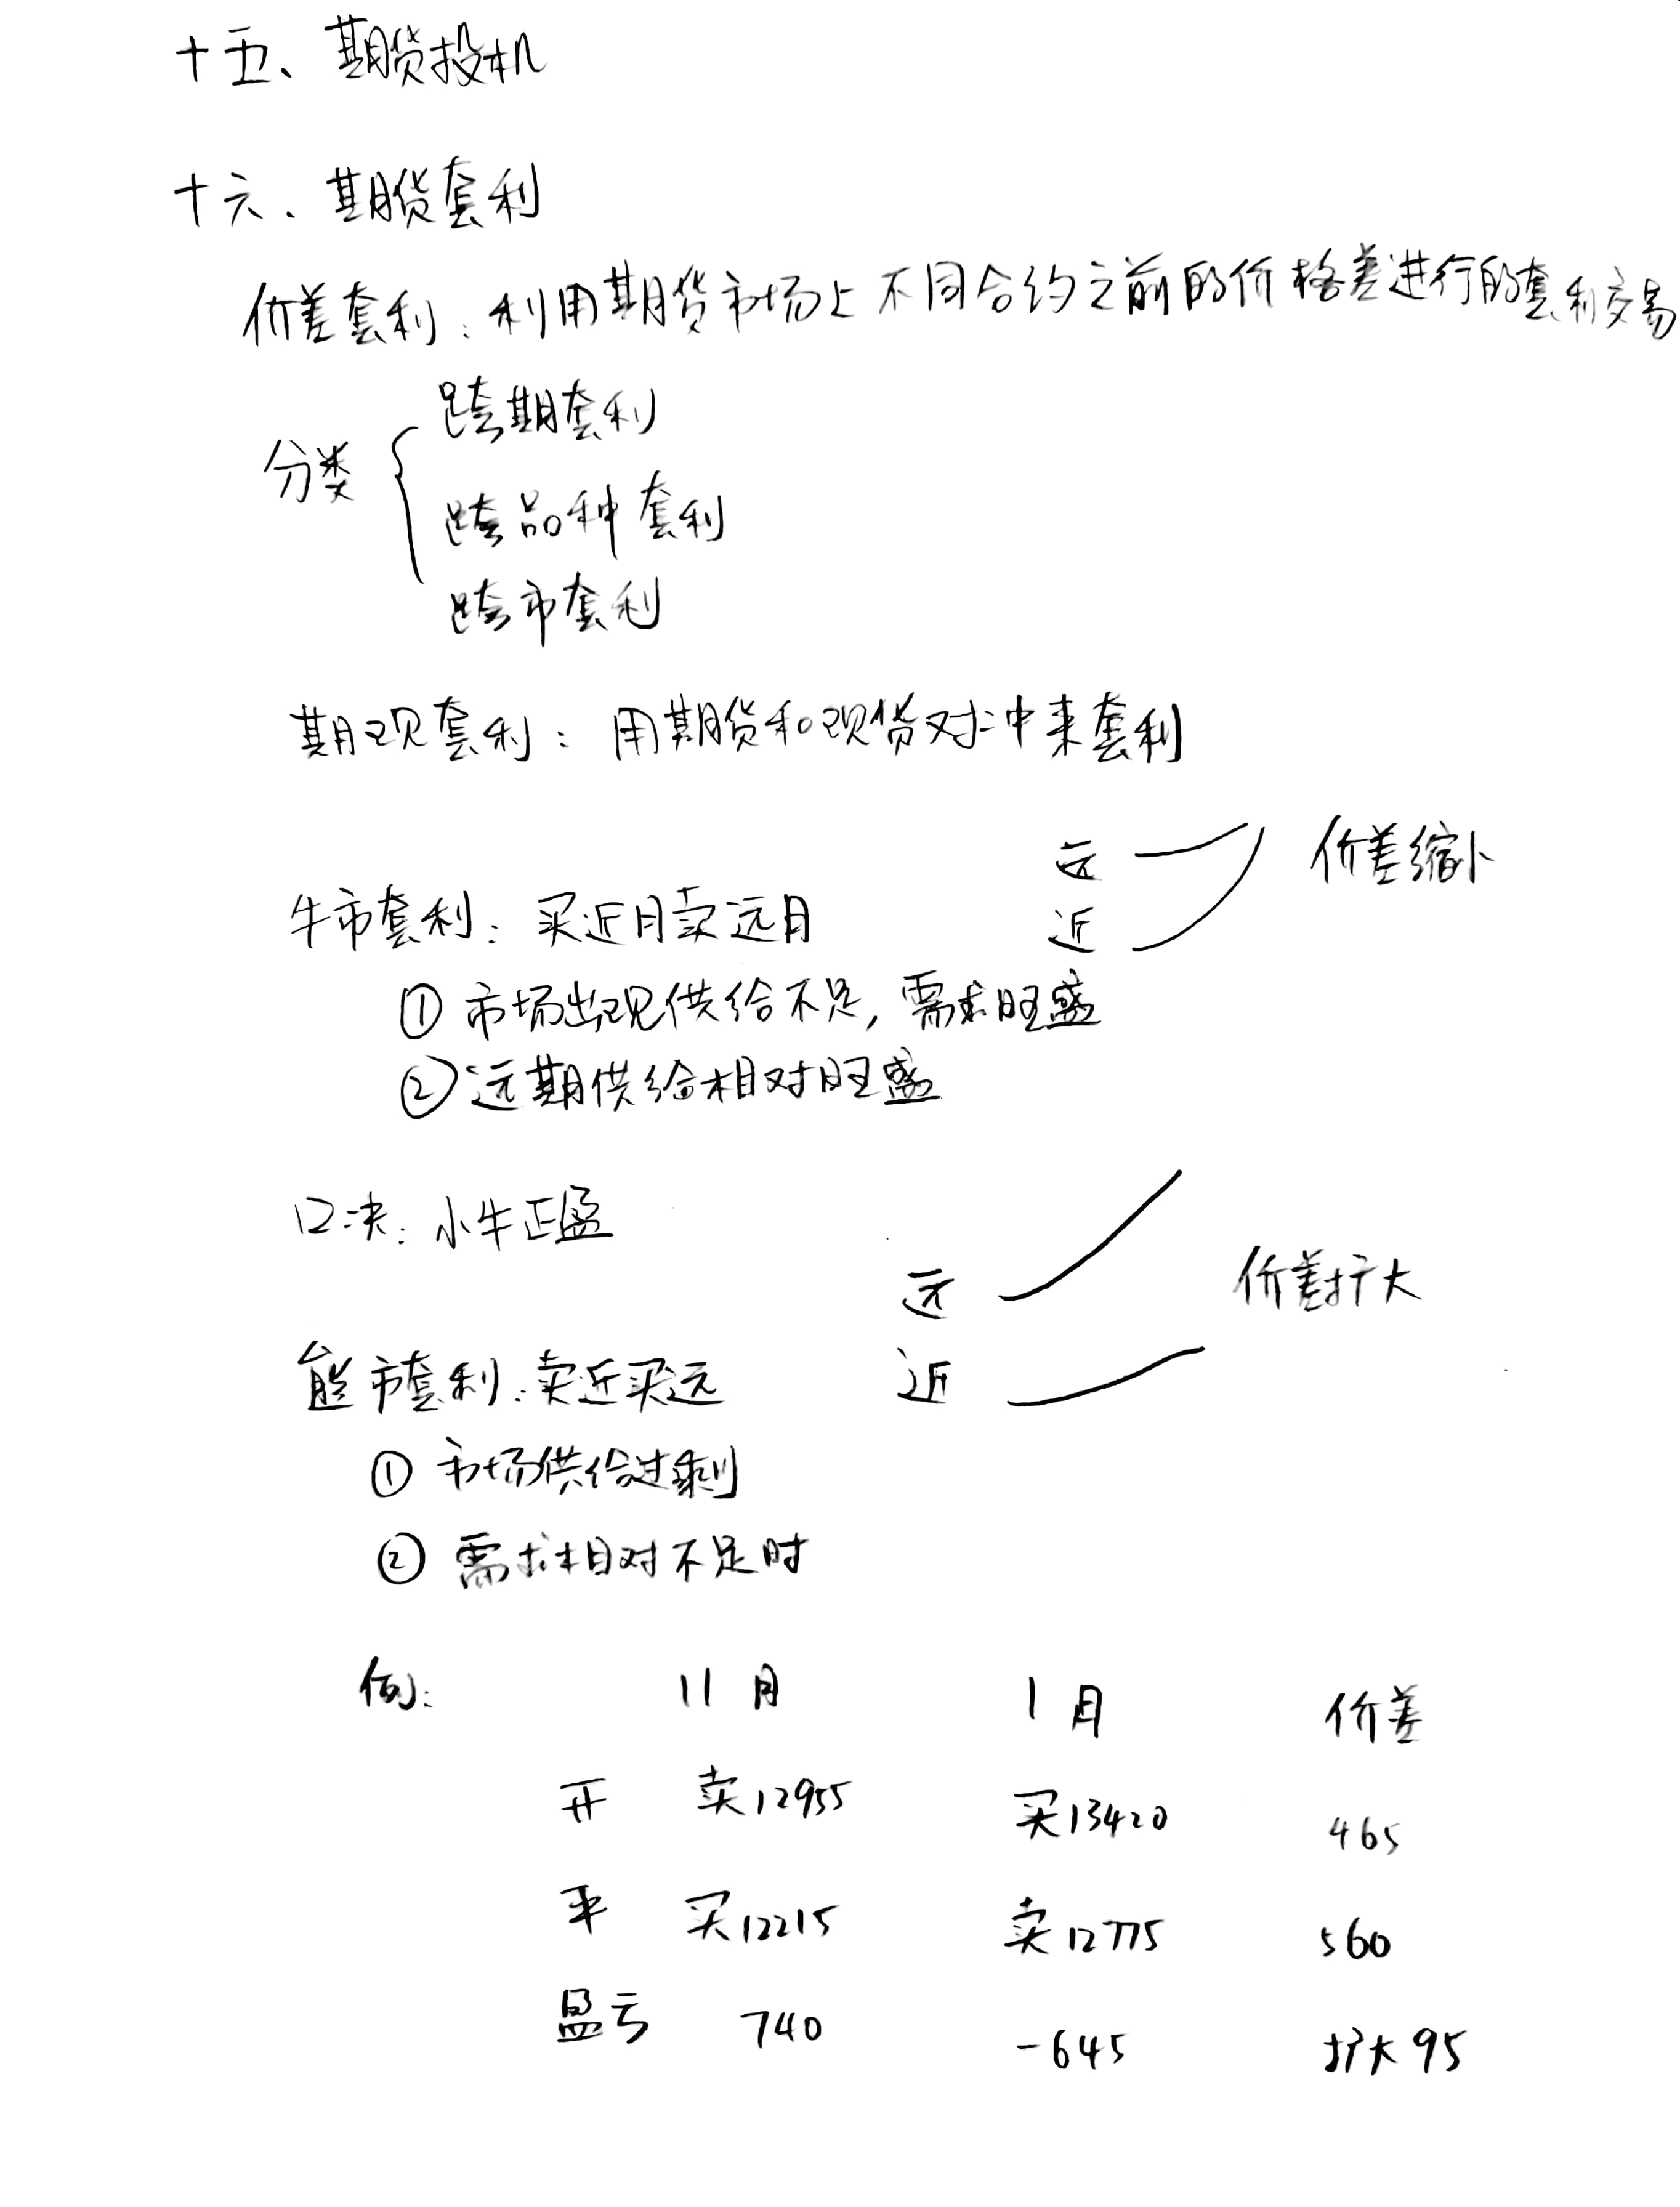 十五、期货投机
十六、期货套利
价差套利：利用期货市场上不同合约之前的价格差进行的套利交易
分类
跨期套利
跨品种套利
跨市套利
期现套利：用期货和现货对冲来套利
远 价差缩小
牛市套利：买近月卖远月 近
① 市场出现供给不足，需求旺盛
② 远期供给相对旺盛
口决：小牛正盈
远 价差扩大
熊市套利：卖近买远 近
① 市场供给过剩
② 需求相对不足时
例： 11月 1月 价差
开 卖12955 买13420 465
平 买12215 卖12775 560
盈亏 740 -645 扩大95